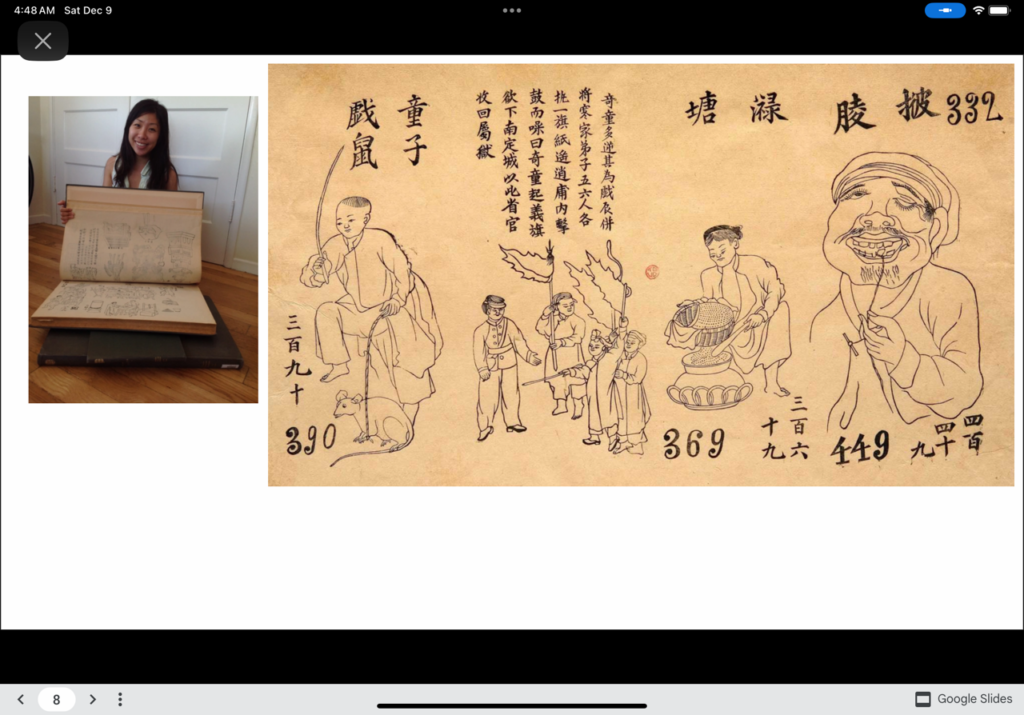 4:48 AM Sat Dec 9
332
塘 渌
童子
戯鼠
奇童多逆甚為戯辰併
將寒家弟子五六人各
一旗紙遊逍庸内擊
鼓而噪曰奇童起義旗
欲下南定城以此省官
收回屬獄
三百九十
390
369
三百六
十九
449
四百
四十
九
8
Google Slides